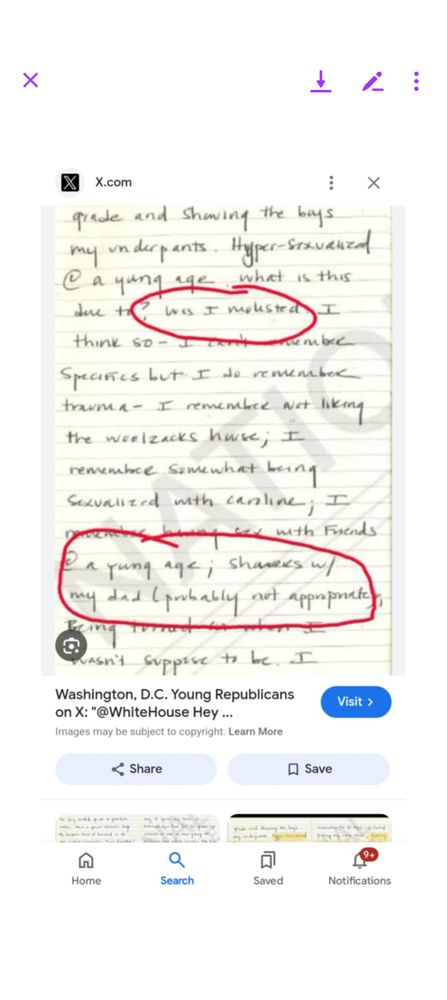 X.com
grade and showing the boys
my underpants. Hyper-sexualized
@ a yung age. what is this
due to? Was I molested. I
think so - I can't remember
specifics but I do remember
trauma - I remember not liking
the woolzacks house; I
remember somewhat being
sexualized with caroline; I
remember having sex with friends
@ a yung age; showers w/
my dad (probably not appropriate),
Being turned on when I
wasn't suppose to be. I
NATIO
Washington, D.C. Young Republicans
on X: "@WhiteHouse Hey ...
Visit >
Images may be subject to copyright. Learn More
Share
Save
Home
Search
Saved
9+
Notifications